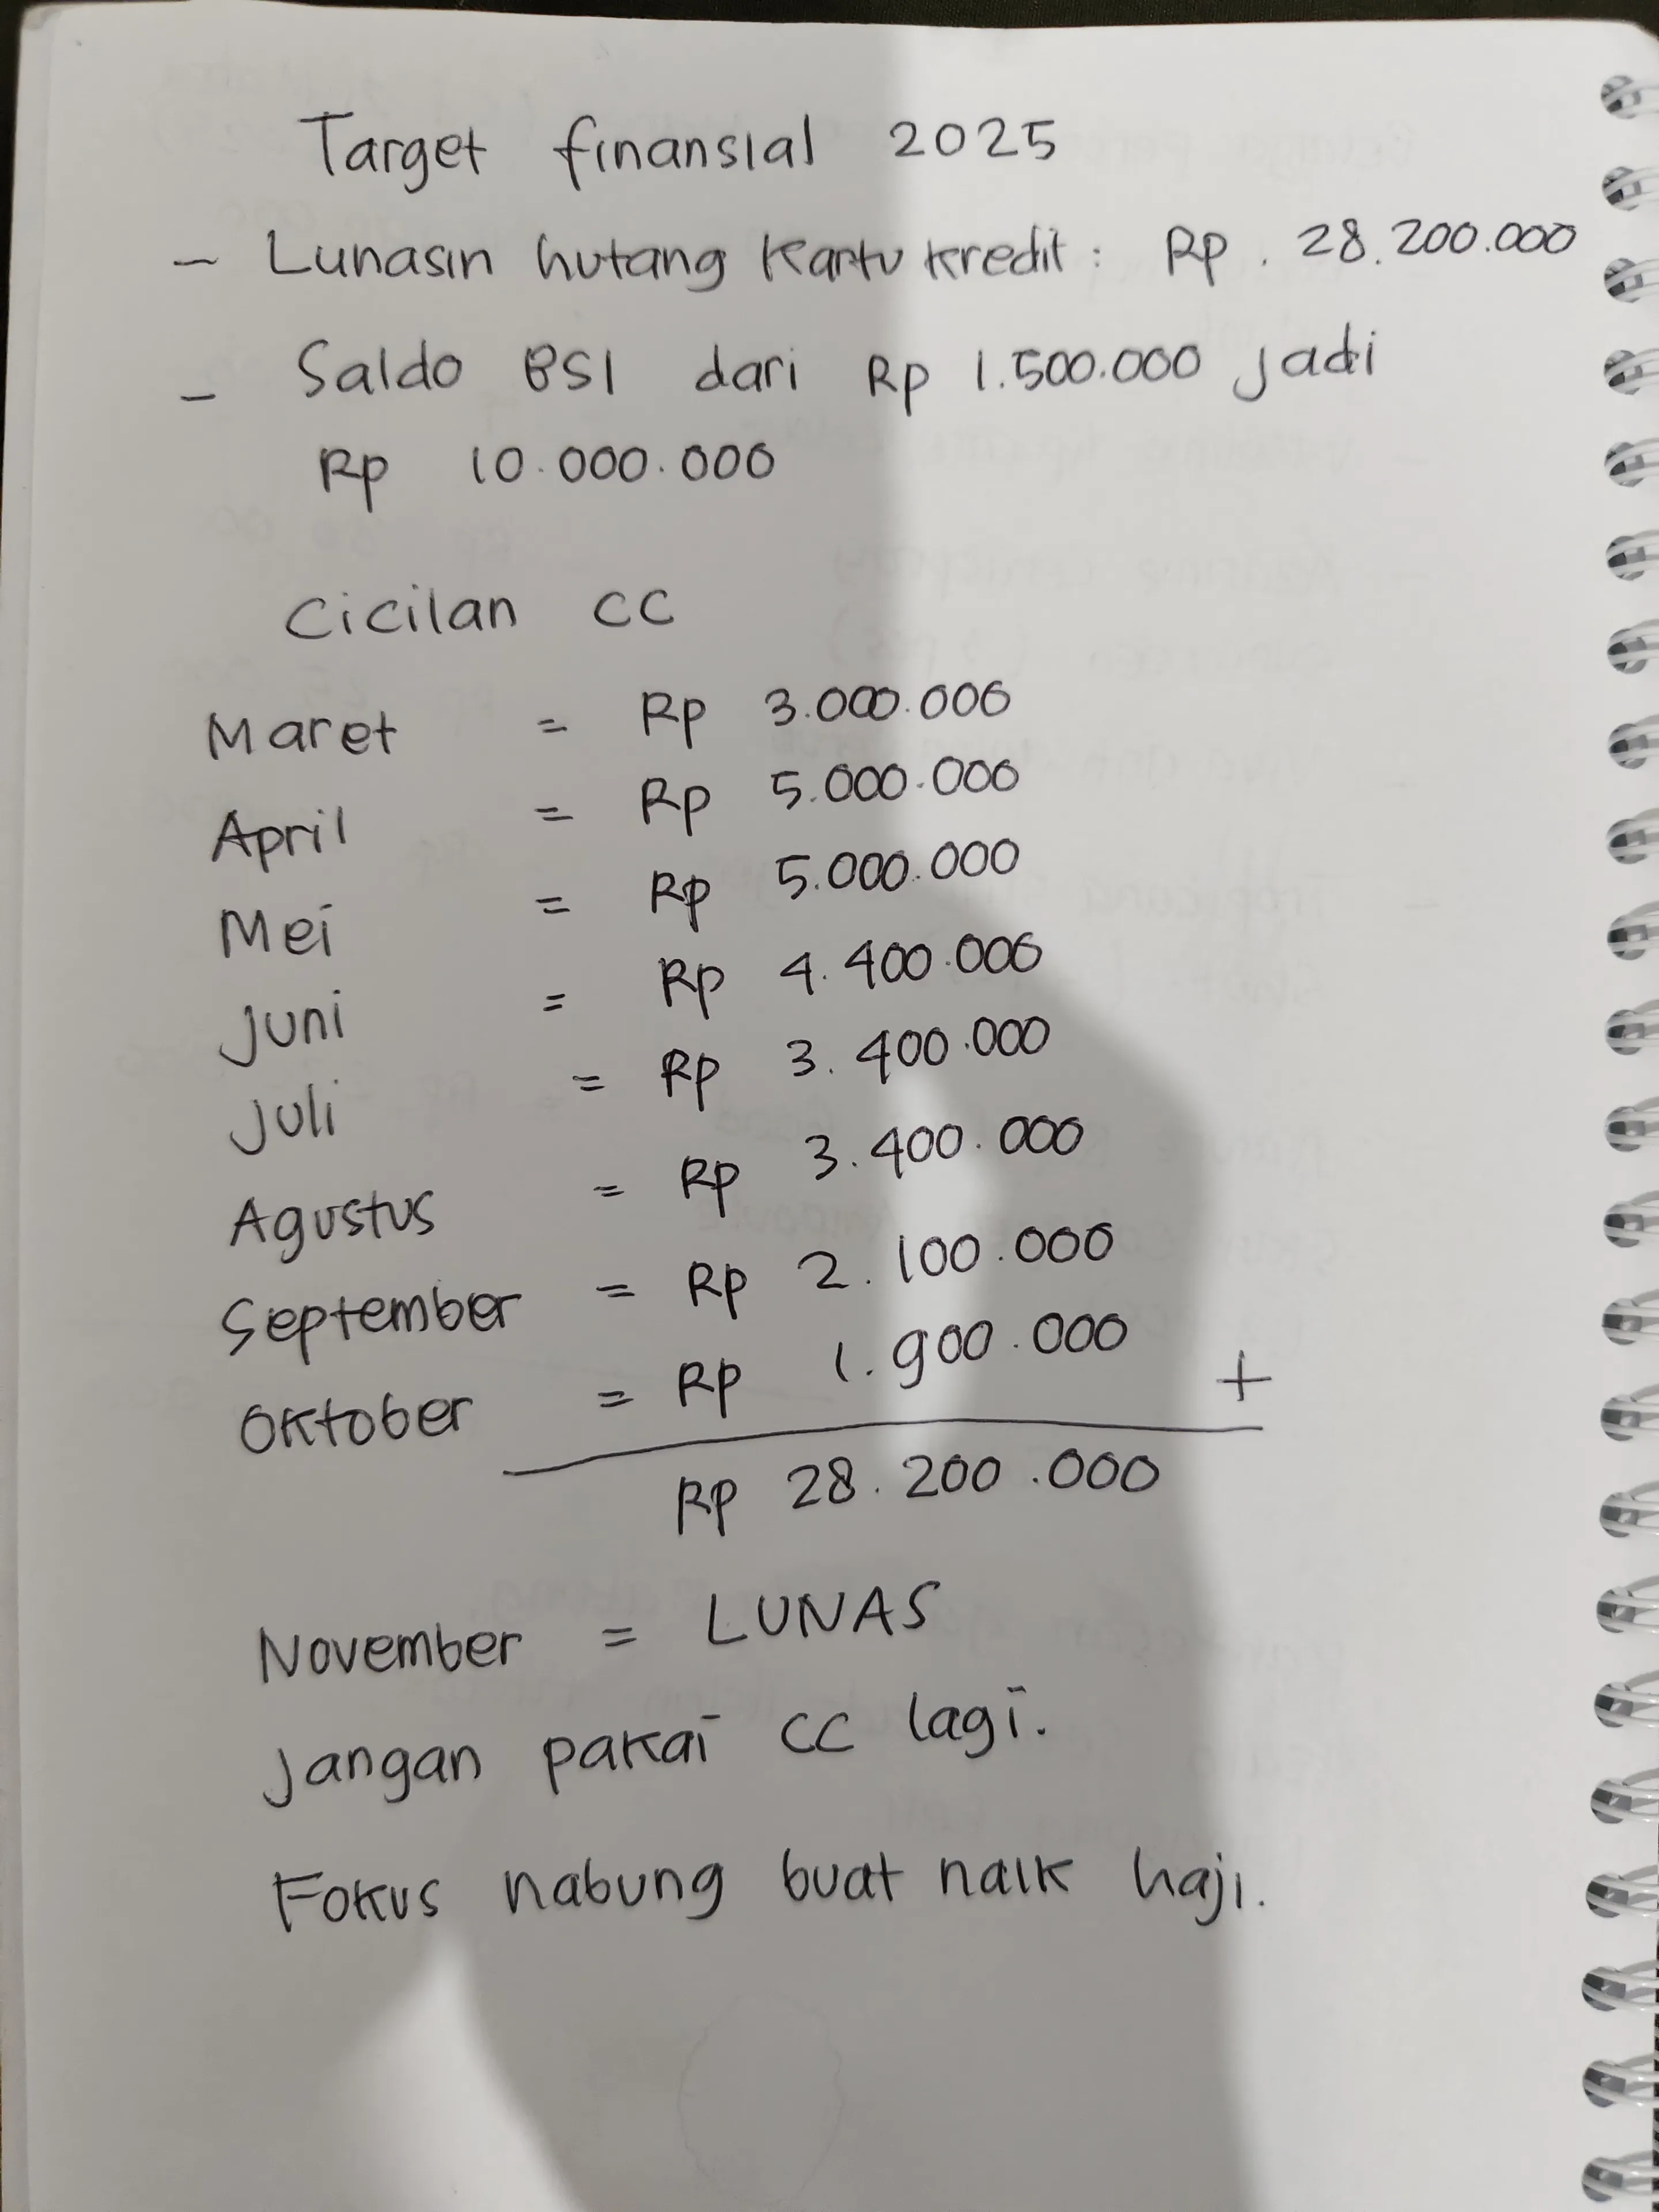 Target finansial 2025
- Lunasin hutang kartu kredit : Rp . 28.200.000
- Saldo BSI dari Rp 1.500.000 jadi
Rp 10.000.000
Cicilan CC
Maret = Rp 3.000.000
April = Rp 5.000.000
Mei = Rp 5.000.000
Juni = Rp 4.400.000
Juli = Rp 3.400.000
Agustus = Rp 3.400.000
September = Rp 2.100.000
Oktober = Rp 1.900.000 +
Rp 28.200.000
November = LUNAS
Jangan pakai CC lagi.
Fokus nabung buat naik haji.